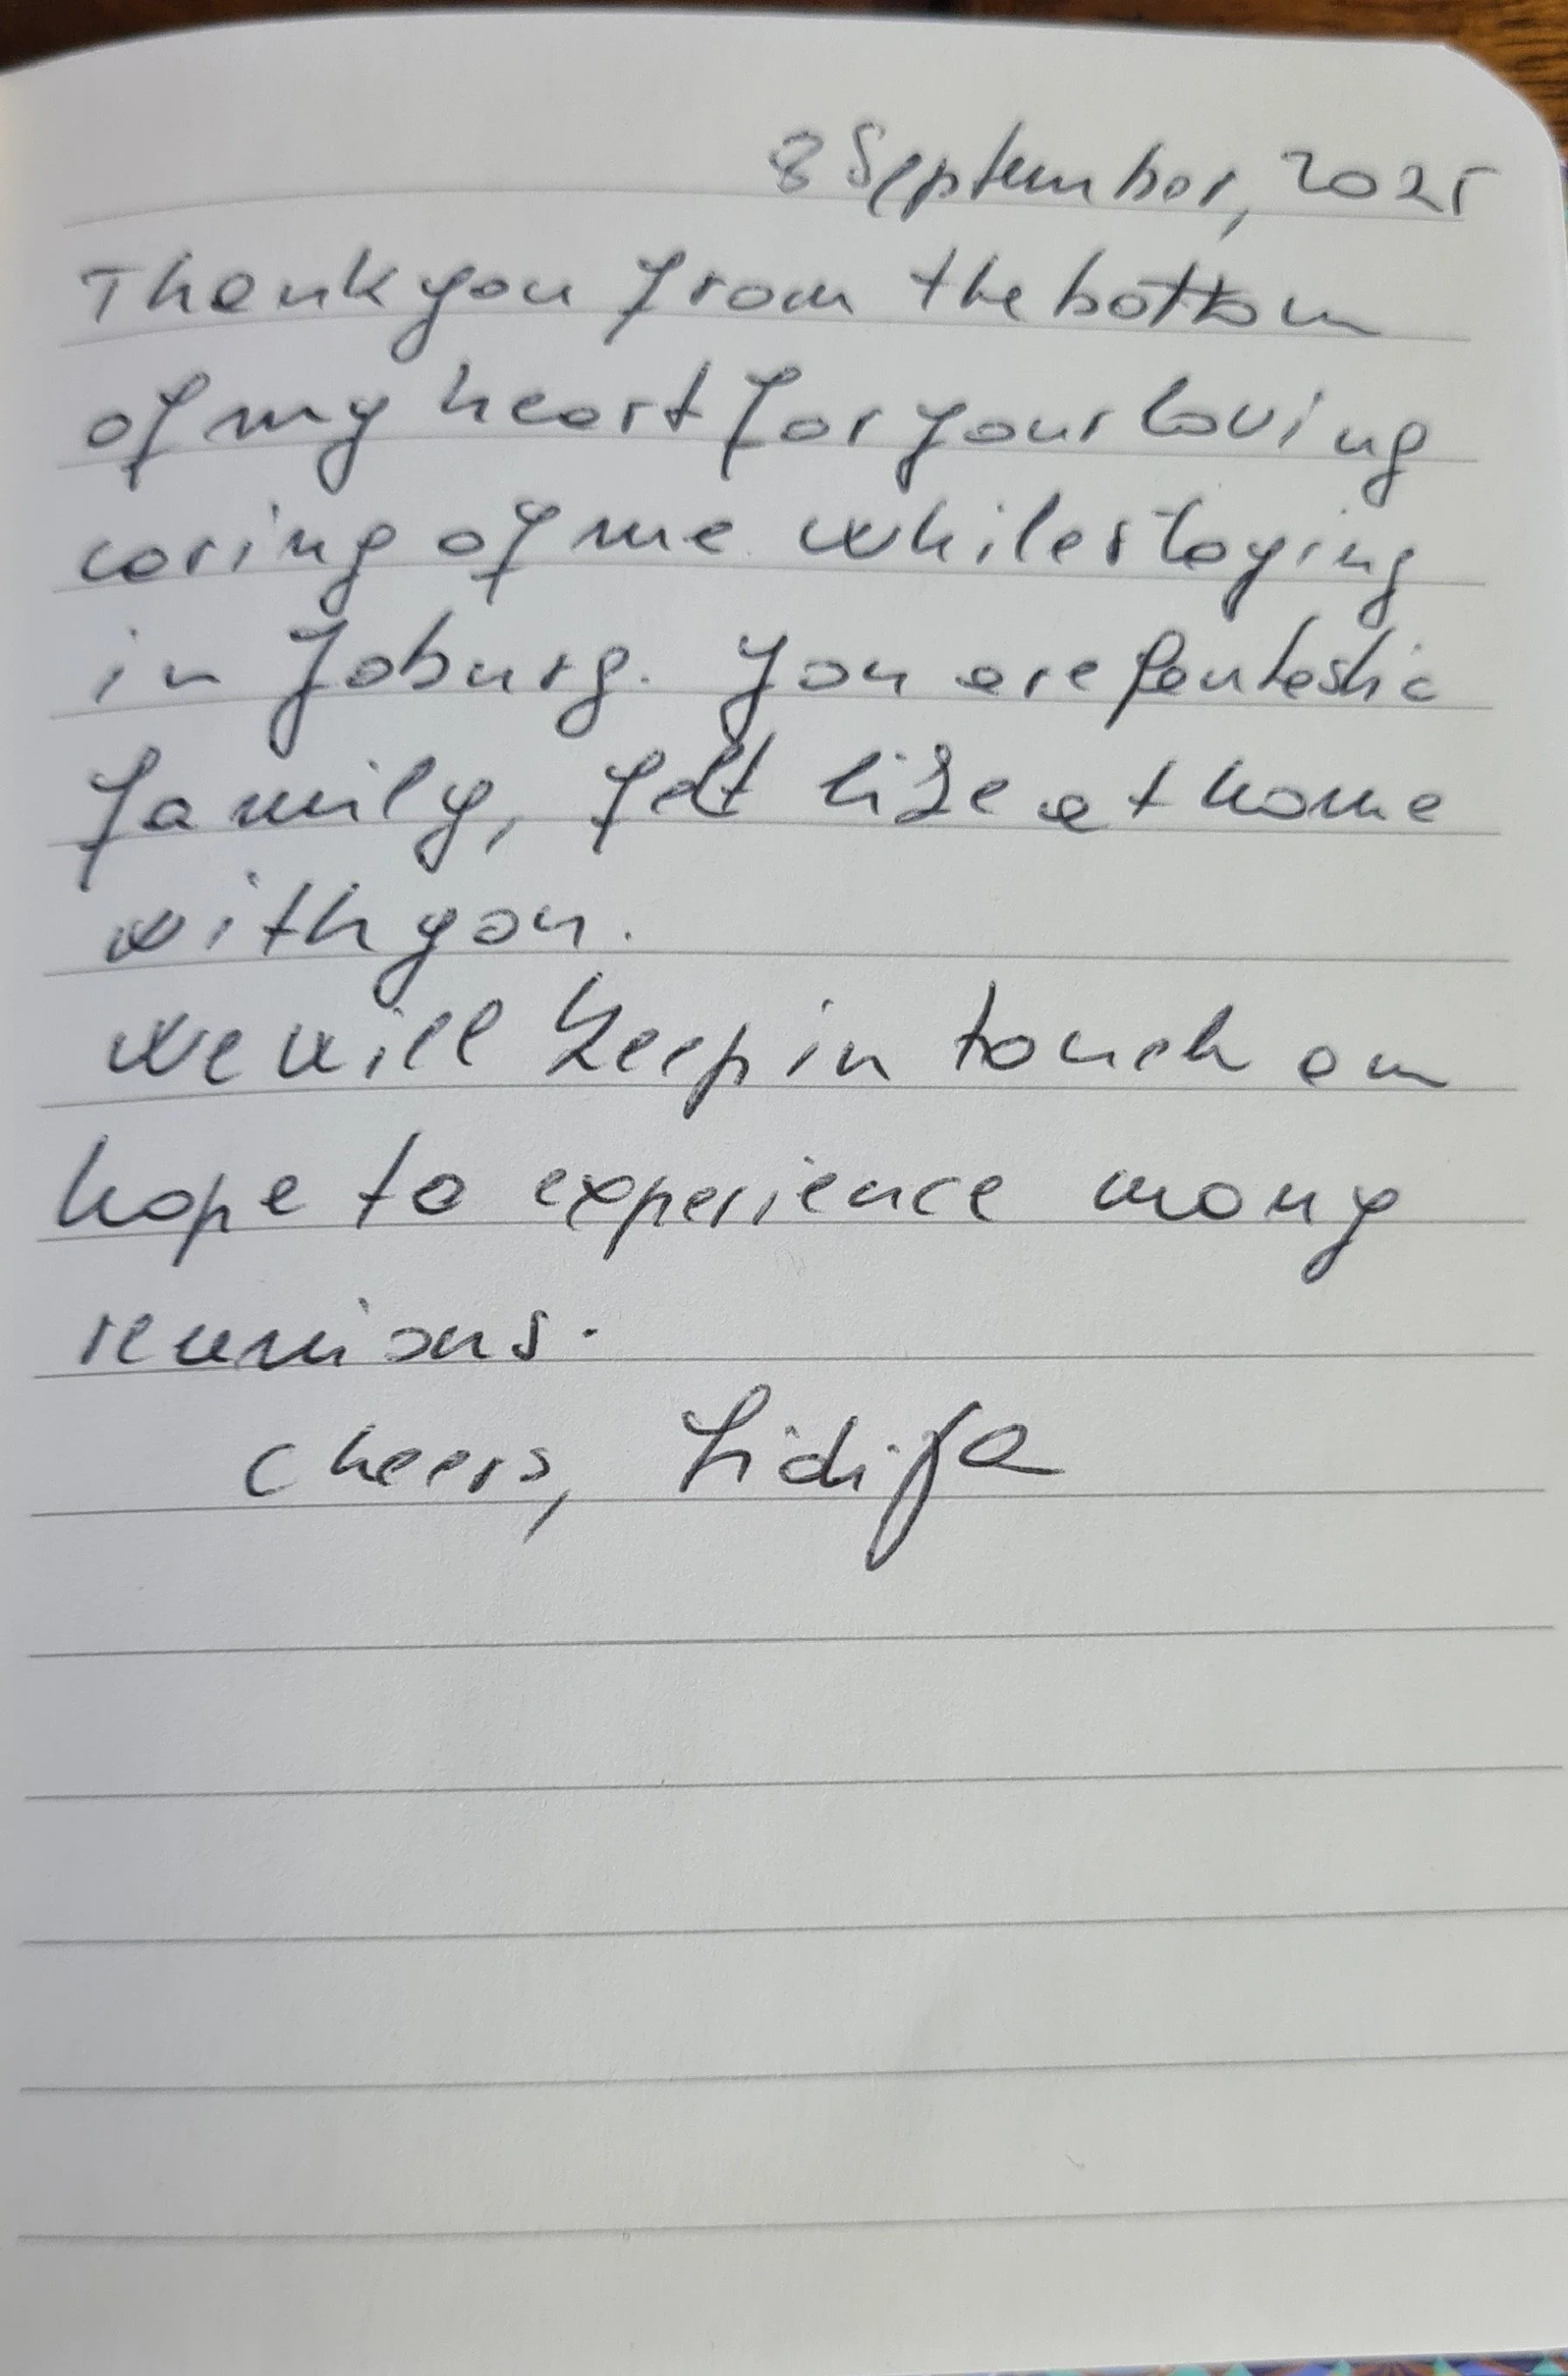 8 September, 2025
Thank you from the bottom
of my heart for your loving
caring of me while staying
in Joburg. You are fantastic
family, felt like at home
with you.
We will keep in touch an
hope to experience many
reunions.
Cheers, Lidija